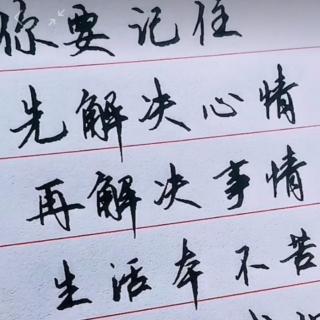 你要记住
先解决心情
再解决事情
生活本不苦